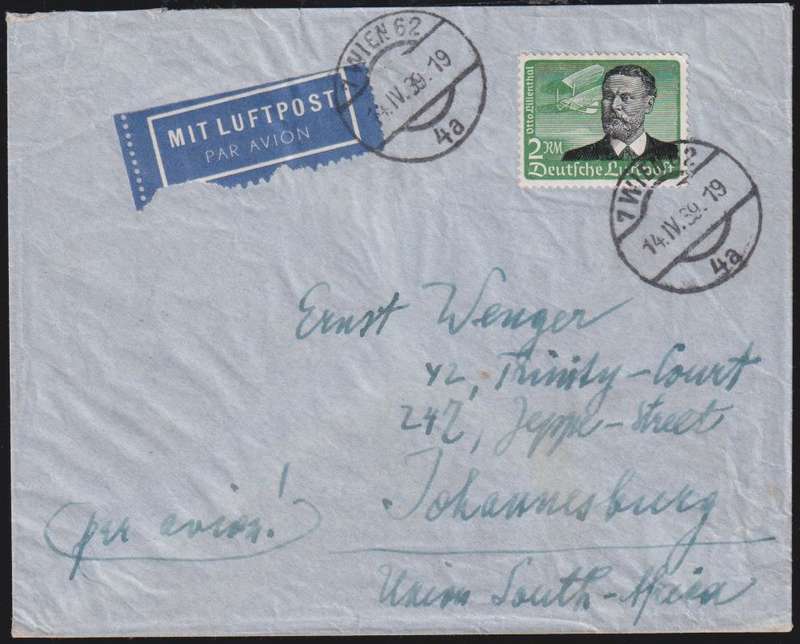 1 WIEN 62
14.IV.39.19
4a
MIT LUFTPOST
PAR AVION
Otto Lilienthal
2 RM
Deutsche Luftpost
1 WIEN 62
14.IV.39.19
4a
Ernst Wenger
42, Trinity-Court
247, Jeppe-Street
Johannesburg
per avion!
Union South-Africa